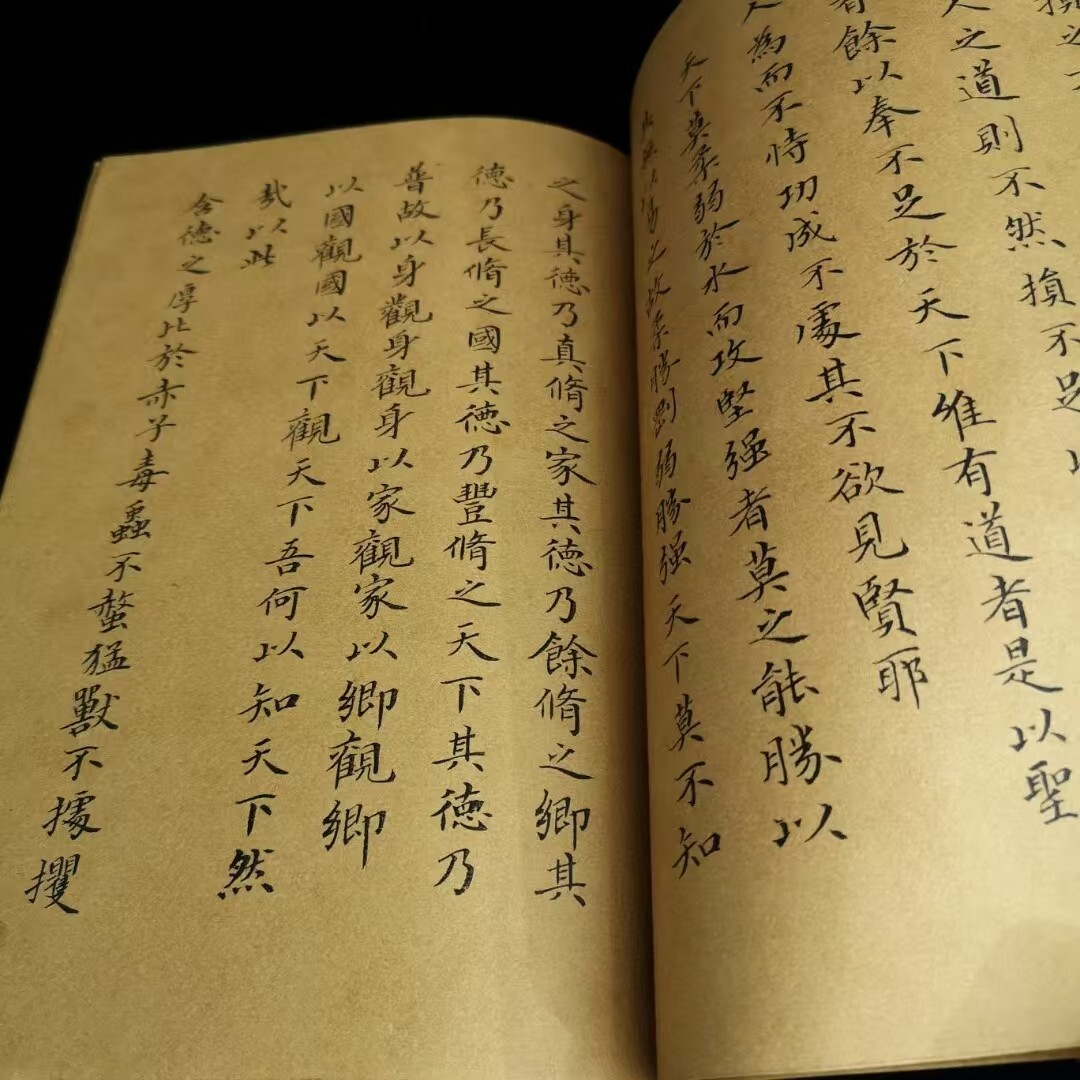 損之不
人之道則不然損不足以
有餘以奉不足於天下惟有道者是以聖
人為而不恃功成不處其不欲見賢耶
天下莫柔弱於水而攻堅强者莫之能勝以
其無以易之故柔勝剛弱勝强天下莫不知
之身其徳乃真脩之家其徳乃餘脩之鄉其
徳乃長脩之國其徳乃豐脩之天下其徳乃
普故以身觀身觀身以家觀家以鄉觀鄉
以國觀國以天下觀天下吾何以知天下然
哉以此
含徳之厚比於赤子毒蟲不螫猛獸不據攫